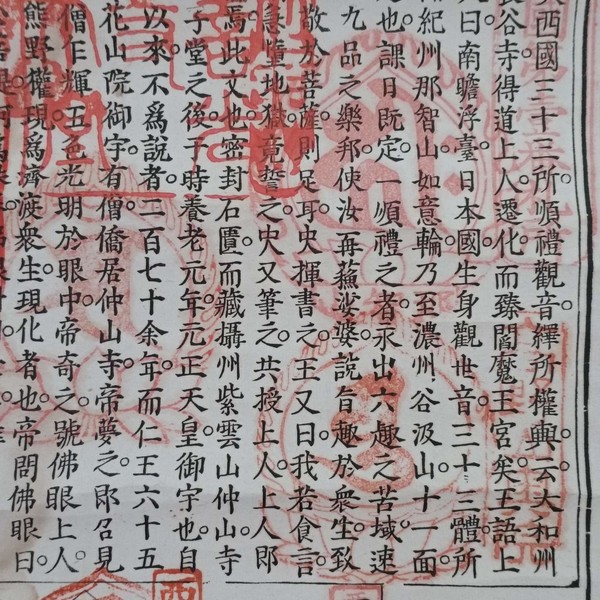 西國三十三所順禮觀音。繹所權輿。云大和州
長谷寺得道上人。遷化而臻閻魔王宮矣。王語上
曰南瞻浮臺日本國。生身觀世音三十三體。所
紀州那智山。如意輪。乃至濃州谷汲山十一面。
也。課日既定。順禮之者。永出六趣之苦域。速
九品之樂邦。使汝再蘇娑婆。說旨趣於衆生。致
敬於菩薩。則足耳。史揮書之。王又曰。我若食言。
急墮地獄。竟誓之。史又筆之。共授上人。上人即
焉此文也。密封石匱。而藏攝州紫雲山仲山寺。
子堂之後。于時養老元年。元正天皇御宇也。自
以來不爲說者。二百七十余年。而仁王六十五
花山院御宇。有僧僑居仲山寺。帝夢之。即召見
僧乍輝五色光明於眼中。帝奇之。號佛眼上人。
熊野權現爲濟渡衆生現化者也。帝問佛眼曰。
西